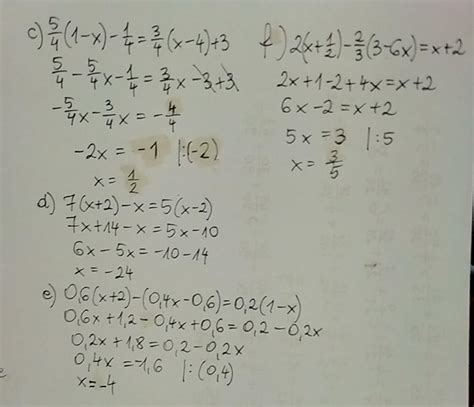 c) 5/4(1-x)-1/4=3/4(x-4)+3
5/4-5/4x-1/4=3/4x-3+3
-5/4x-3/4x=-4/4
-2x=-1 |:(-2)
x=1/2
d) 7(x+2)-x=5(x-2)
7x+14-x=5x-10
6x-5x=-10-14
x=-24
e) 0,6(x+2)-(0,4x-0,6)=0,2(1-x)
0,6x+1,2-0,4x+0,6=0,2-0,2x
0,2x+1,8=0,2-0,2x
0,4x=-1,6 |:(0,4)
x=-4
f) 2(x+1/2)-2/3(3-6x)=x+2
2x+1-2+4x=x+2
6x-2=x+2
5x=3 |:5
x=3/5